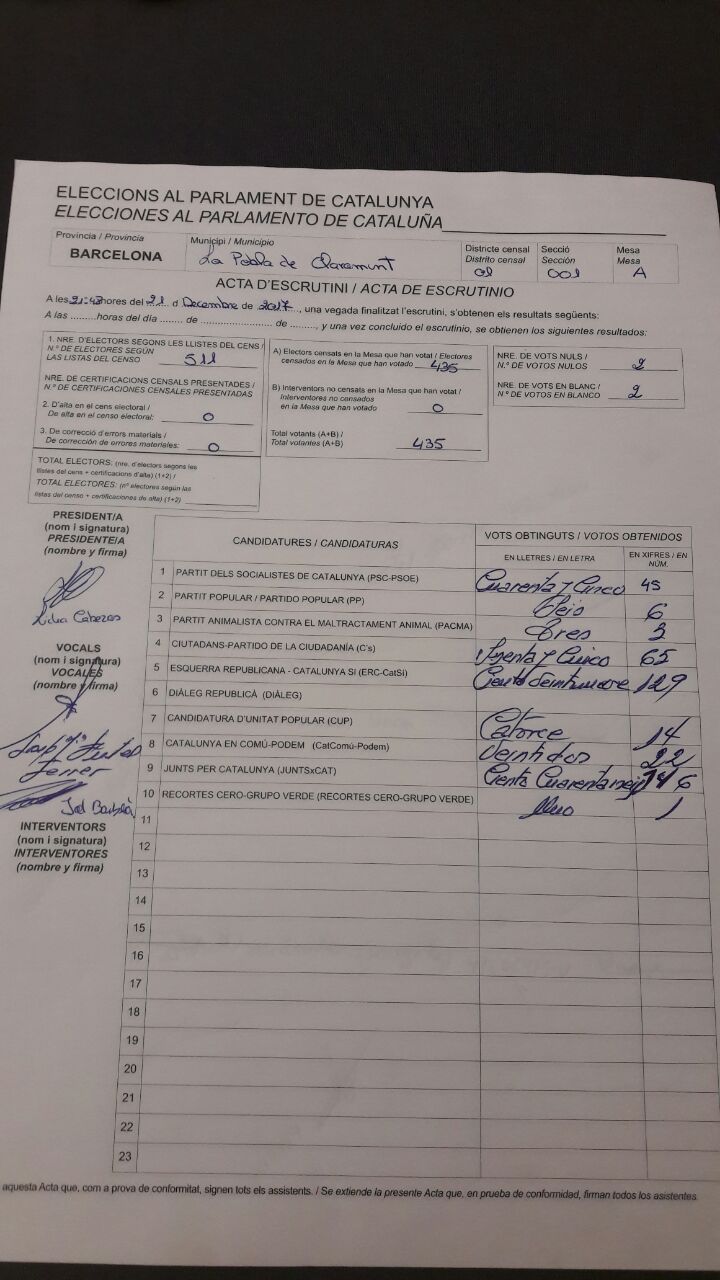 ELECCIONS AL PARLAMENT DE CATALUNYA
ELECCIONES AL PARLAMENTO DE CATALUÑA
Província / Provincia
BARCELONA
Municipi / Municipio
La Pobla de Claramunt
Districte censal
Distrito censal
01
Secció
Sección
001
Mesa
Mesa
A
ACTA D'ESCRUTINI / ACTA DE ESCRUTINIO
A les 21:43 hores del 21 d Decembre de 2017, una vegada finalitzat l'escrutini, s'obtenen els resultats següents:
A las .........horas del día ........ de ........................ de ........, y una vez concluido el escrutinio, se obtienen los siguientes resultados:
1. NRE. D'ELECTORS SEGONS LES LLISTES DEL CENS /
N.º DE ELECTORES SEGÚN
LAS LISTAS DEL CENSO 511
NRE. DE CERTIFICACIONS CENSALS PRESENTADES /
N.º DE CERTIFICACIONES CENSALES PRESENTADAS
2. D'alta en el cens electoral /
De alta en el censo electoral: 0
3. De correcció d'errors materials /
De corrección de errores materiales: 0
TOTAL ELECTORS: (nre. d'electors segons les
llistes del cens + certificacions d'alta) (1+2) /
TOTAL ELECTORES: (nº electores según las
listas del censo + certificaciones de alta) (1+2)
A) Electors censats en la Mesa que han votat / Electores
censados en la Mesa que han votado 435
B) Interventors no censats en la Mesa que han votat /
Interventores no censados
en la Mesa que han votado 0
Total votants (A+B) /
Total votantes (A+B) 435
NRE. DE VOTS NULS /
N.º DE VOTOS NULOS 2
NRE. DE VOTS EN BLANC /
N.º DE VOTOS EN BLANCO 2
PRESIDENT/A
(nom i signatura)
PRESIDENTE/A
(nombre y firma)
VOCALS
(nom i signatura)
VOCALES
(nombre y firma)
Ferrer
INTERVENTORS
(nom i signatura)
INTERVENTORES
(nombre y firma)
CANDIDATURES / CANDIDATURAS
VOTS OBTINGUTS / VOTOS OBTENIDOS
EN LLETRES / EN LETRA
EN XIFRES / EN NÚM.
1 PARTIT DELS SOCIALISTES DE CATALUNYA (PSC-PSOE) Cuarenta y Cinco 45
2 PARTIT POPULAR / PARTIDO POPULAR (PP) Seis 6
3 PARTIT ANIMALISTA CONTRA EL MALTRACTAMENT ANIMAL (PACMA) Tres 3
4 CIUTADANS-PARTIDO DE LA CIUDADANÍA (C's) Sesenta y Cinco 65
5 ESQUERRA REPUBLICANA - CATALUNYA SI (ERC-CatSI) Ciento 129
6 DIÀLEG REPUBLICÀ (DIÀLEG)
7 CANDIDATURA D'UNITAT POPULAR (CUP) Catorce 14
8 CATALUNYA EN COMÚ-PODEM (CatComú-Podem) Veintidos 22
9 JUNTS PER CATALUNYA (JUNTSxCAT) Ciento Cuarenta 146
10 RECORTES CERO-GRUPO VERDE (RECORTES CERO-GRUPO VERDE) Uno 1
11
12
13
14
15
16
17
18
19
20
21
22
23
aquesta Acta que, com a prova de conformitat, signen tots els assistents. / Se extiende la presente Acta que, en prueba de conformidad, firman todos los asistentes.